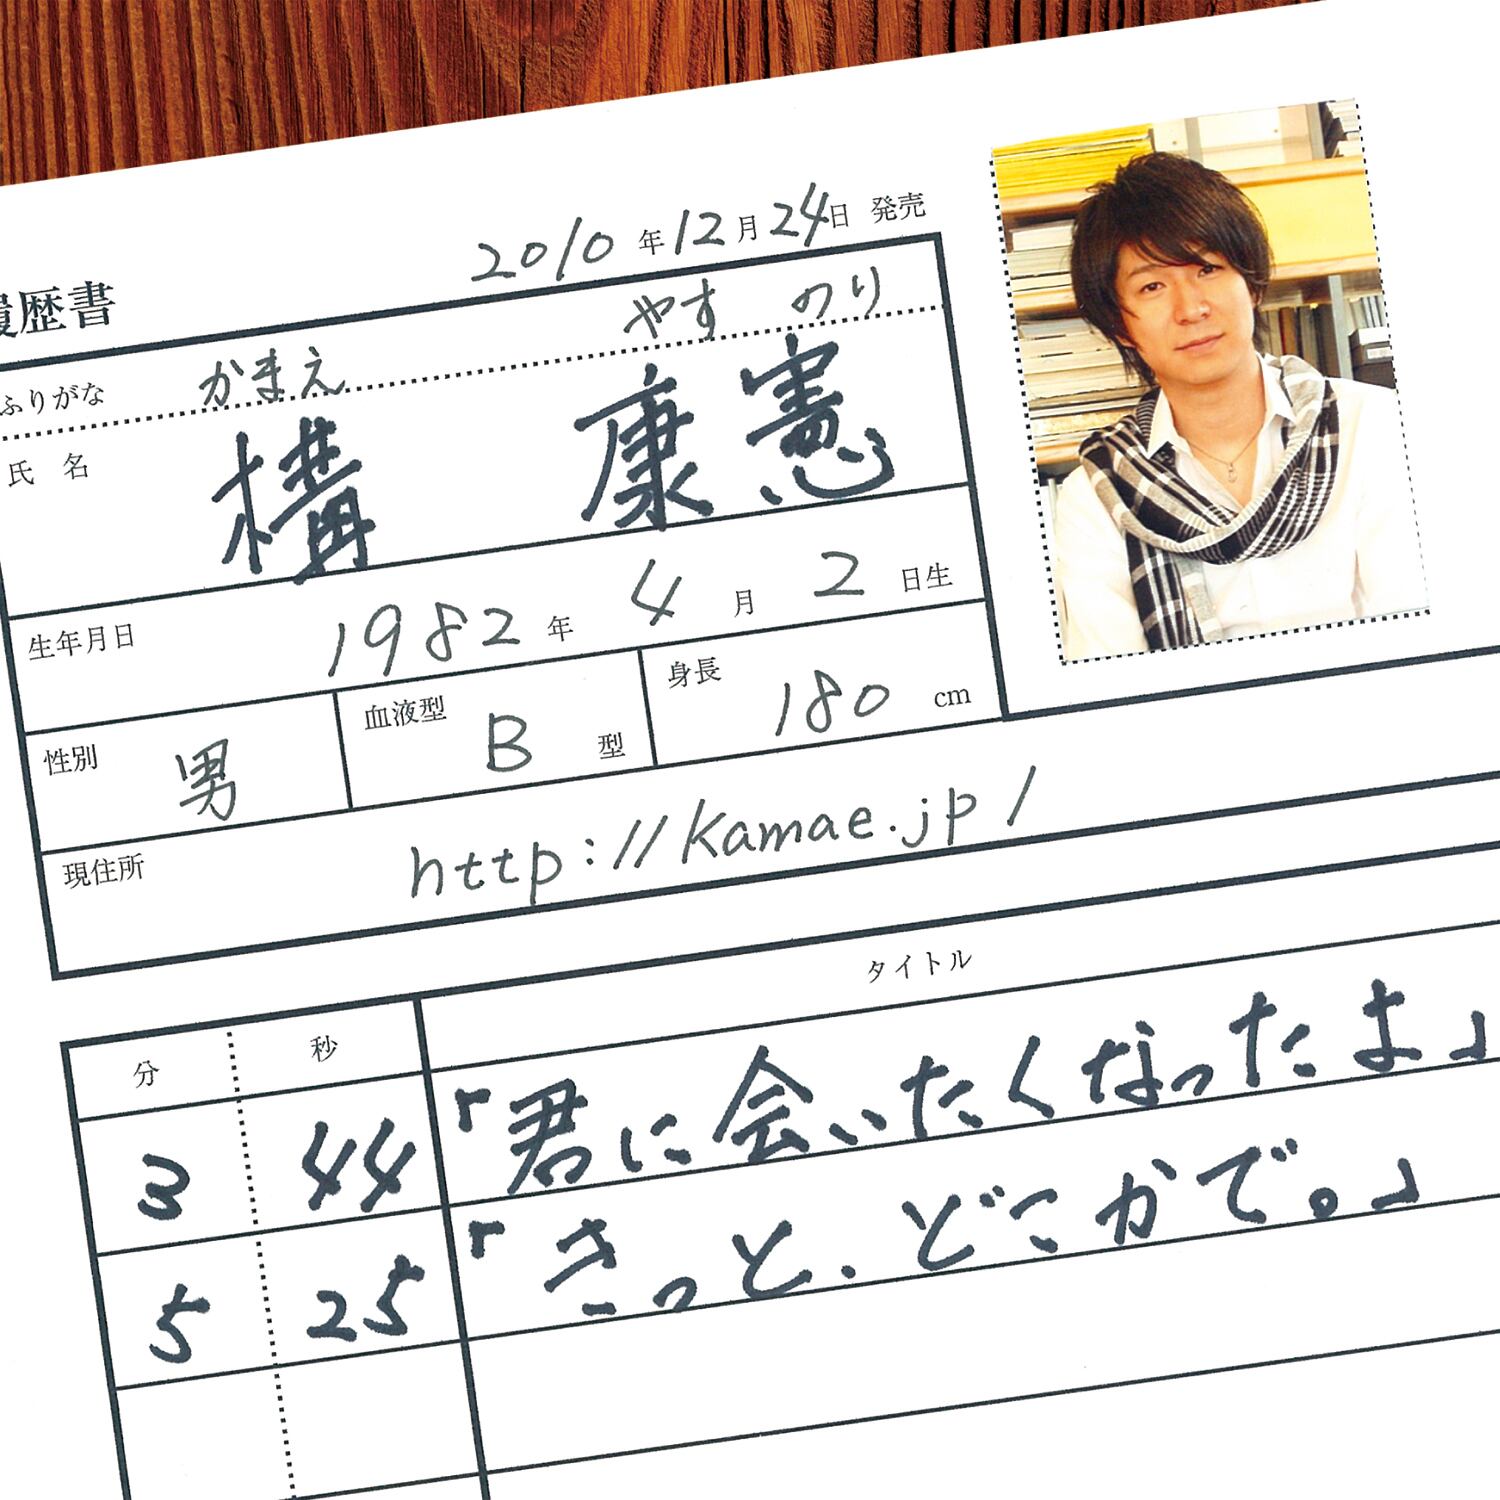 2010年12月24日 発売
履歴書
ふりがな かまえ やす のり
氏 名 構 康憲
生年月日 1982年4月2日生
性別 男 血液型 B型 身長 180cm
現住所 http://kamae.jp/
分 秒 タイトル
3 44 「君に会いたくなったよ」
5 25 「きっと、どこかで。」